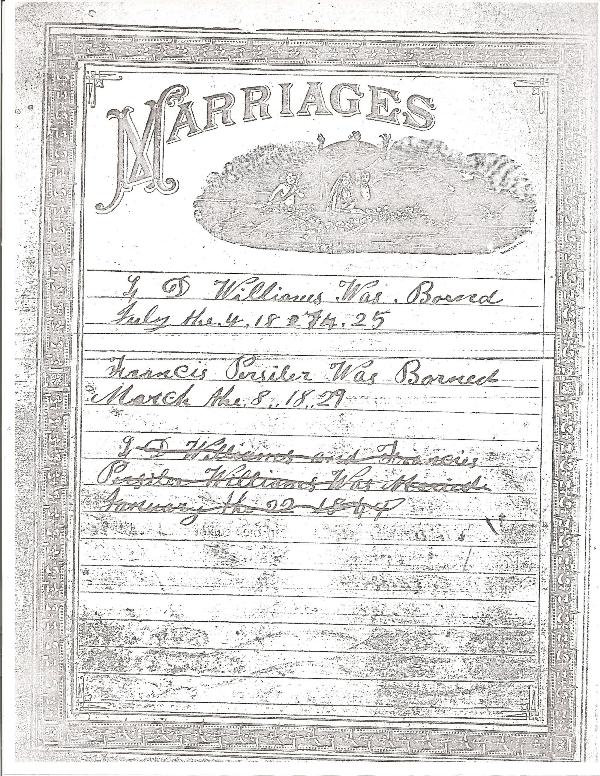 MARRIAGES
D Williams Was Borned
July the 4 18 25
Francis Persiler Was Borned
March the 8, 18, 29
D Williams and Francies
Persiler Williams Was
January the 22 1844